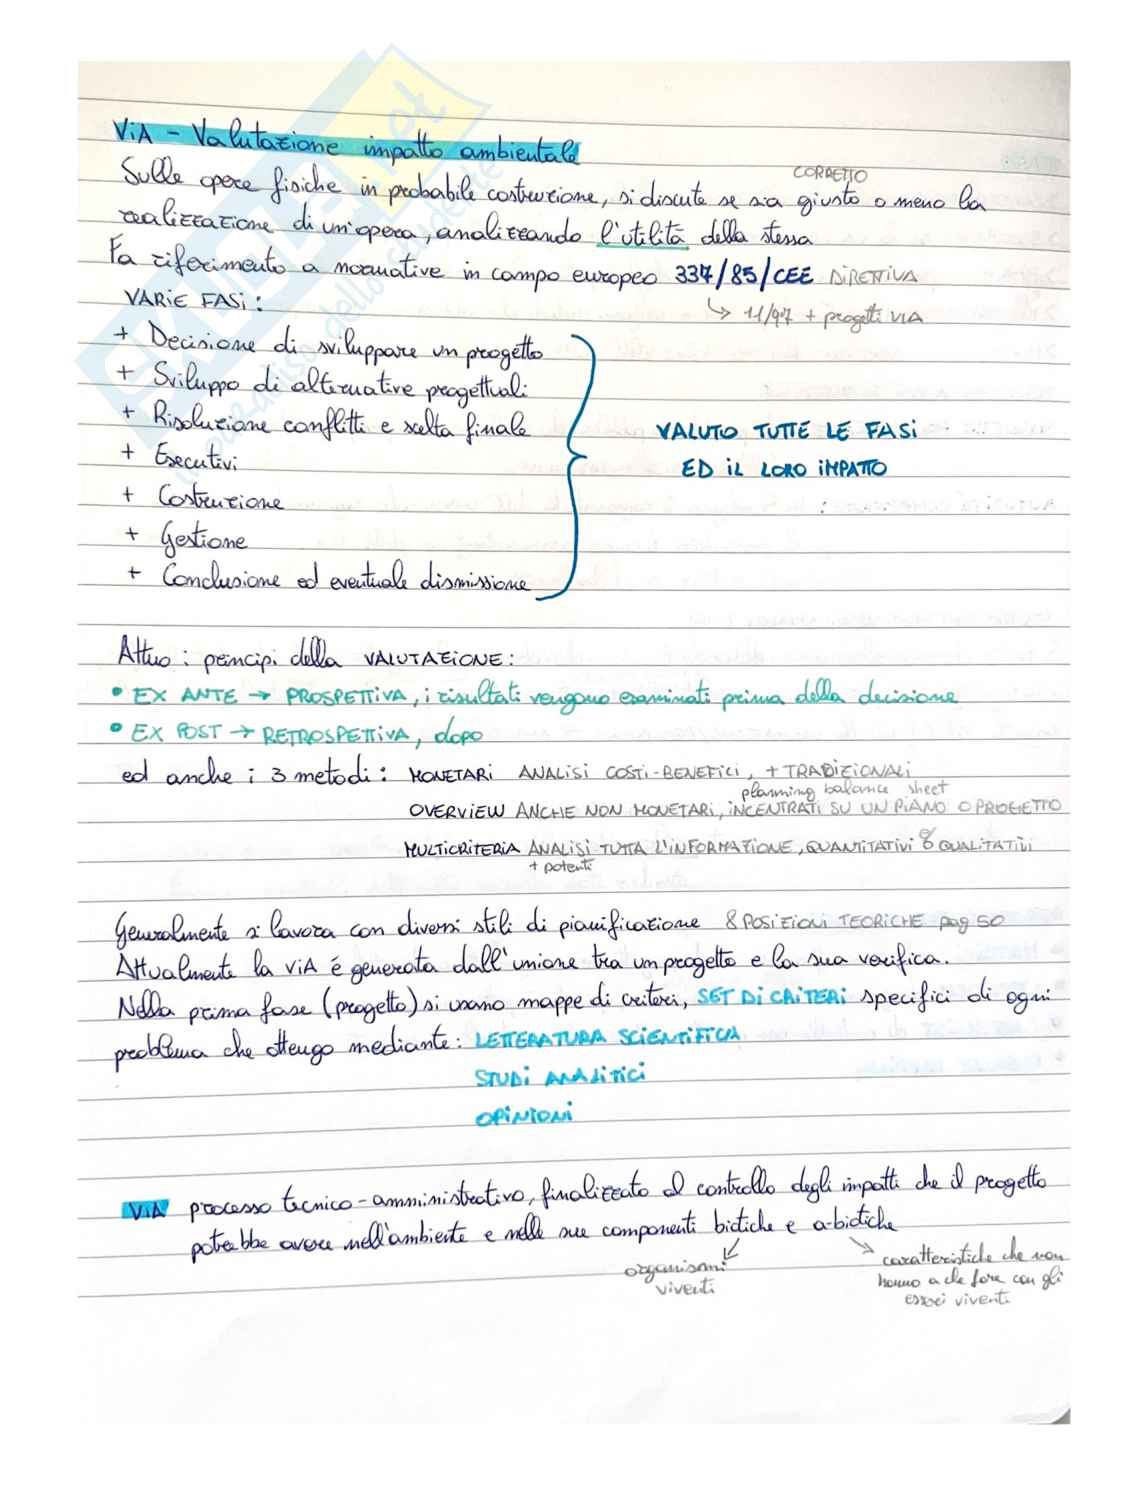 ViA - Valutazione impatto ambientale
CORRETTO
Sulle opere fisiche in probabile costruzione, si discute se sia giusto o meno la
realizzazione di un'opera, analizzando l'utilità della stessa
Fa riferimento a normative in campo europeo 337/85/CEE DIRETTIVA
VARIE FASI:
↳ 11/97 + progetti VIA
+ Decisione di sviluppare un progetto
+ Sviluppo di alternative progettuali
+ Risoluzione conflitti e scelta finale
VALUTO TUTTE LE FASI
+ Esecutivi
ED IL LORO IMPATTO
+ Costruzione
+ Gestione
+ Conclusione ed eventuale dismissione
Attuo i principi della VALUTAZIONE:
• EX ANTE → PROSPETTIVA, i risultati vengono esaminati prima della decisione
• EX POST → RETROSPETTIVA, dopo
ed anche i 3 metodi: MONETARI ANALISI COSTI-BENEFICI, + TRADIZIONALI
planning balance sheet
OVERVIEW ANCHE NON MONETARI, INCENTRATI SU UN PIANO O PROGETTO
MULTICRITERIA ANALISI TUTTA L'INFORMAZIONE, QUANTITATIVI & QUALITATIVI
+ potenti
Generalmente si lavora con diversi stili di pianificazione 8 POSIZIONI TEORICHE pag 50
Attualmente la ViA é generata dall'unione tra un progetto e la sua verifica.
Nella prima fase (progetto) si usano mappe di criteri, SET DI CRITERI specifici di ogni
problema che ottengo mediante: LETTERATURA SCIENTIFICA
STUDI ANALITICI
OPINIONI
ViA processo tecnico-amministrativo, finalizzato al controllo degli impatti che il progetto
potrebbe avere nell'ambiente e nelle sue componenti biotiche e a-biotiche
organismi viventi
caratteristiche che non
hanno a che fare con gli
esseri viventi